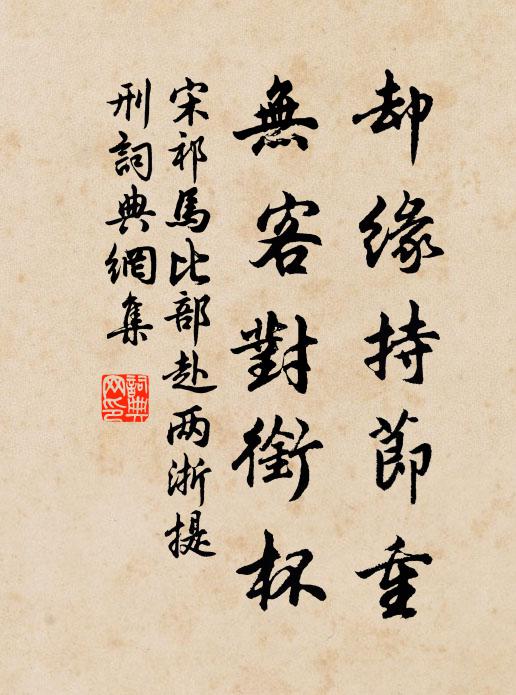 却缘持節重
無客對銜杯
宋祁馬比部赴两浙提
刑詞典網集
詞典网印